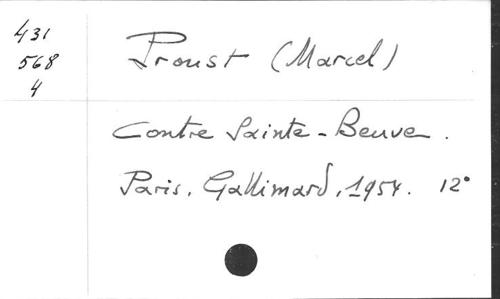 431
568
4
Proust (Marcel)
Contre Sainte-Beuve.
Paris, Gallimard, 1954. 12°